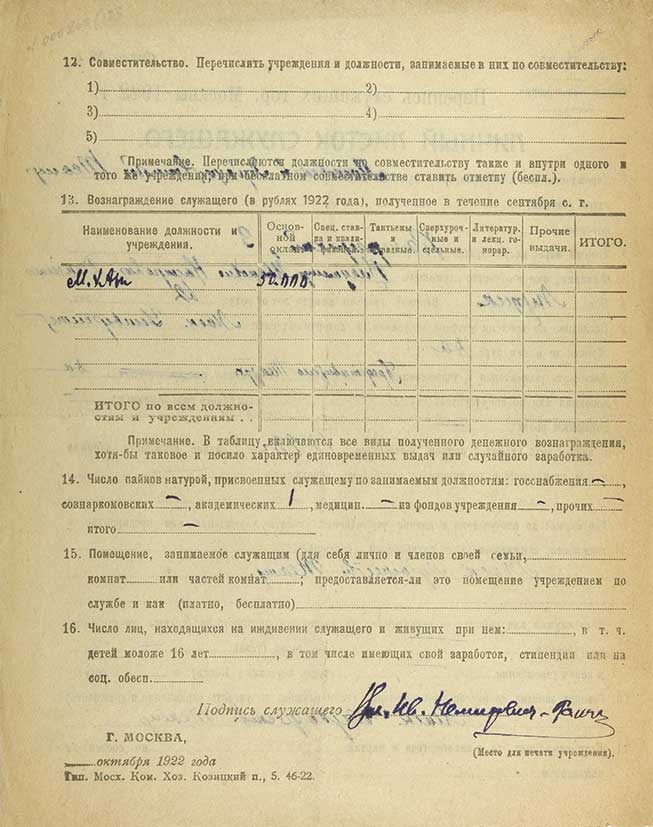 12. Совместительство. Перечислить учреждения и должности, занимаемые в них по совместительству:
1) 2)
3) 4)
5)
Примечание. Перечисляются должности по совместительству также и внутри одного и
того же учреждения, при бесплатном совместительстве ставить отметку (беспл.).
13. Вознаграждение служащего (в рублях 1922 года), полученное в течение сентября с. г.
Наименование должности и учреждения. Основной оклад. Спец. ставка и Тантьемы и Сверхурочные и сдельные. Литератур. и лекц. гонорар. Прочие выдачи. ИТОГО.
М.ХАТ 50.000
ИТОГО по всем должностям и учреждениям . .
Примечание. В таблицу включаются все виды полученного денежного вознаграждения,
хотя-бы таковое и носило характер единовременных выдач или случайного заработка.
14. Число пайков натурой, присвоенных служащему по занимаемым должностям: госснабжения –,
совнаркомовских –, академических 1, медицин. – из фондов учреждения –, прочих –
итого –
15. Помещение, занимаемое служащим (для себя лично и членов своей семьи,
комнат или частей комнат; предоставляется-ли это помещение учреждением по
службе и как (платно, бесплатно)
16. Число лиц, находящихся на иждивении служащего и живущих при нем:, в т. ч.
детей моложе 16 лет, в том числе имеющих свой заработок, стипендия или на
соц. обесп.
Подпись служащего Вл. Ив. Немирович-Данч
Г. МОСКВА,
(Место для печати учреждения).
октября 1922 года
Тип. Мосх. Ком. Хоз. Козицкий п., 5. 46-22.